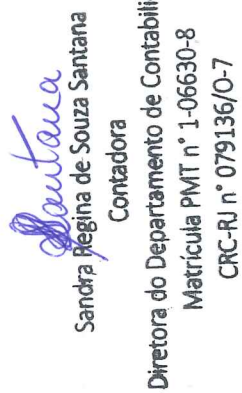 Santana
Sandra Regina de Souza Santana
Contadora
Diretora do Departamento de Contabili
Matrícula PMT n° 1-06630-8
CRC-RJ n° 079136/O-7